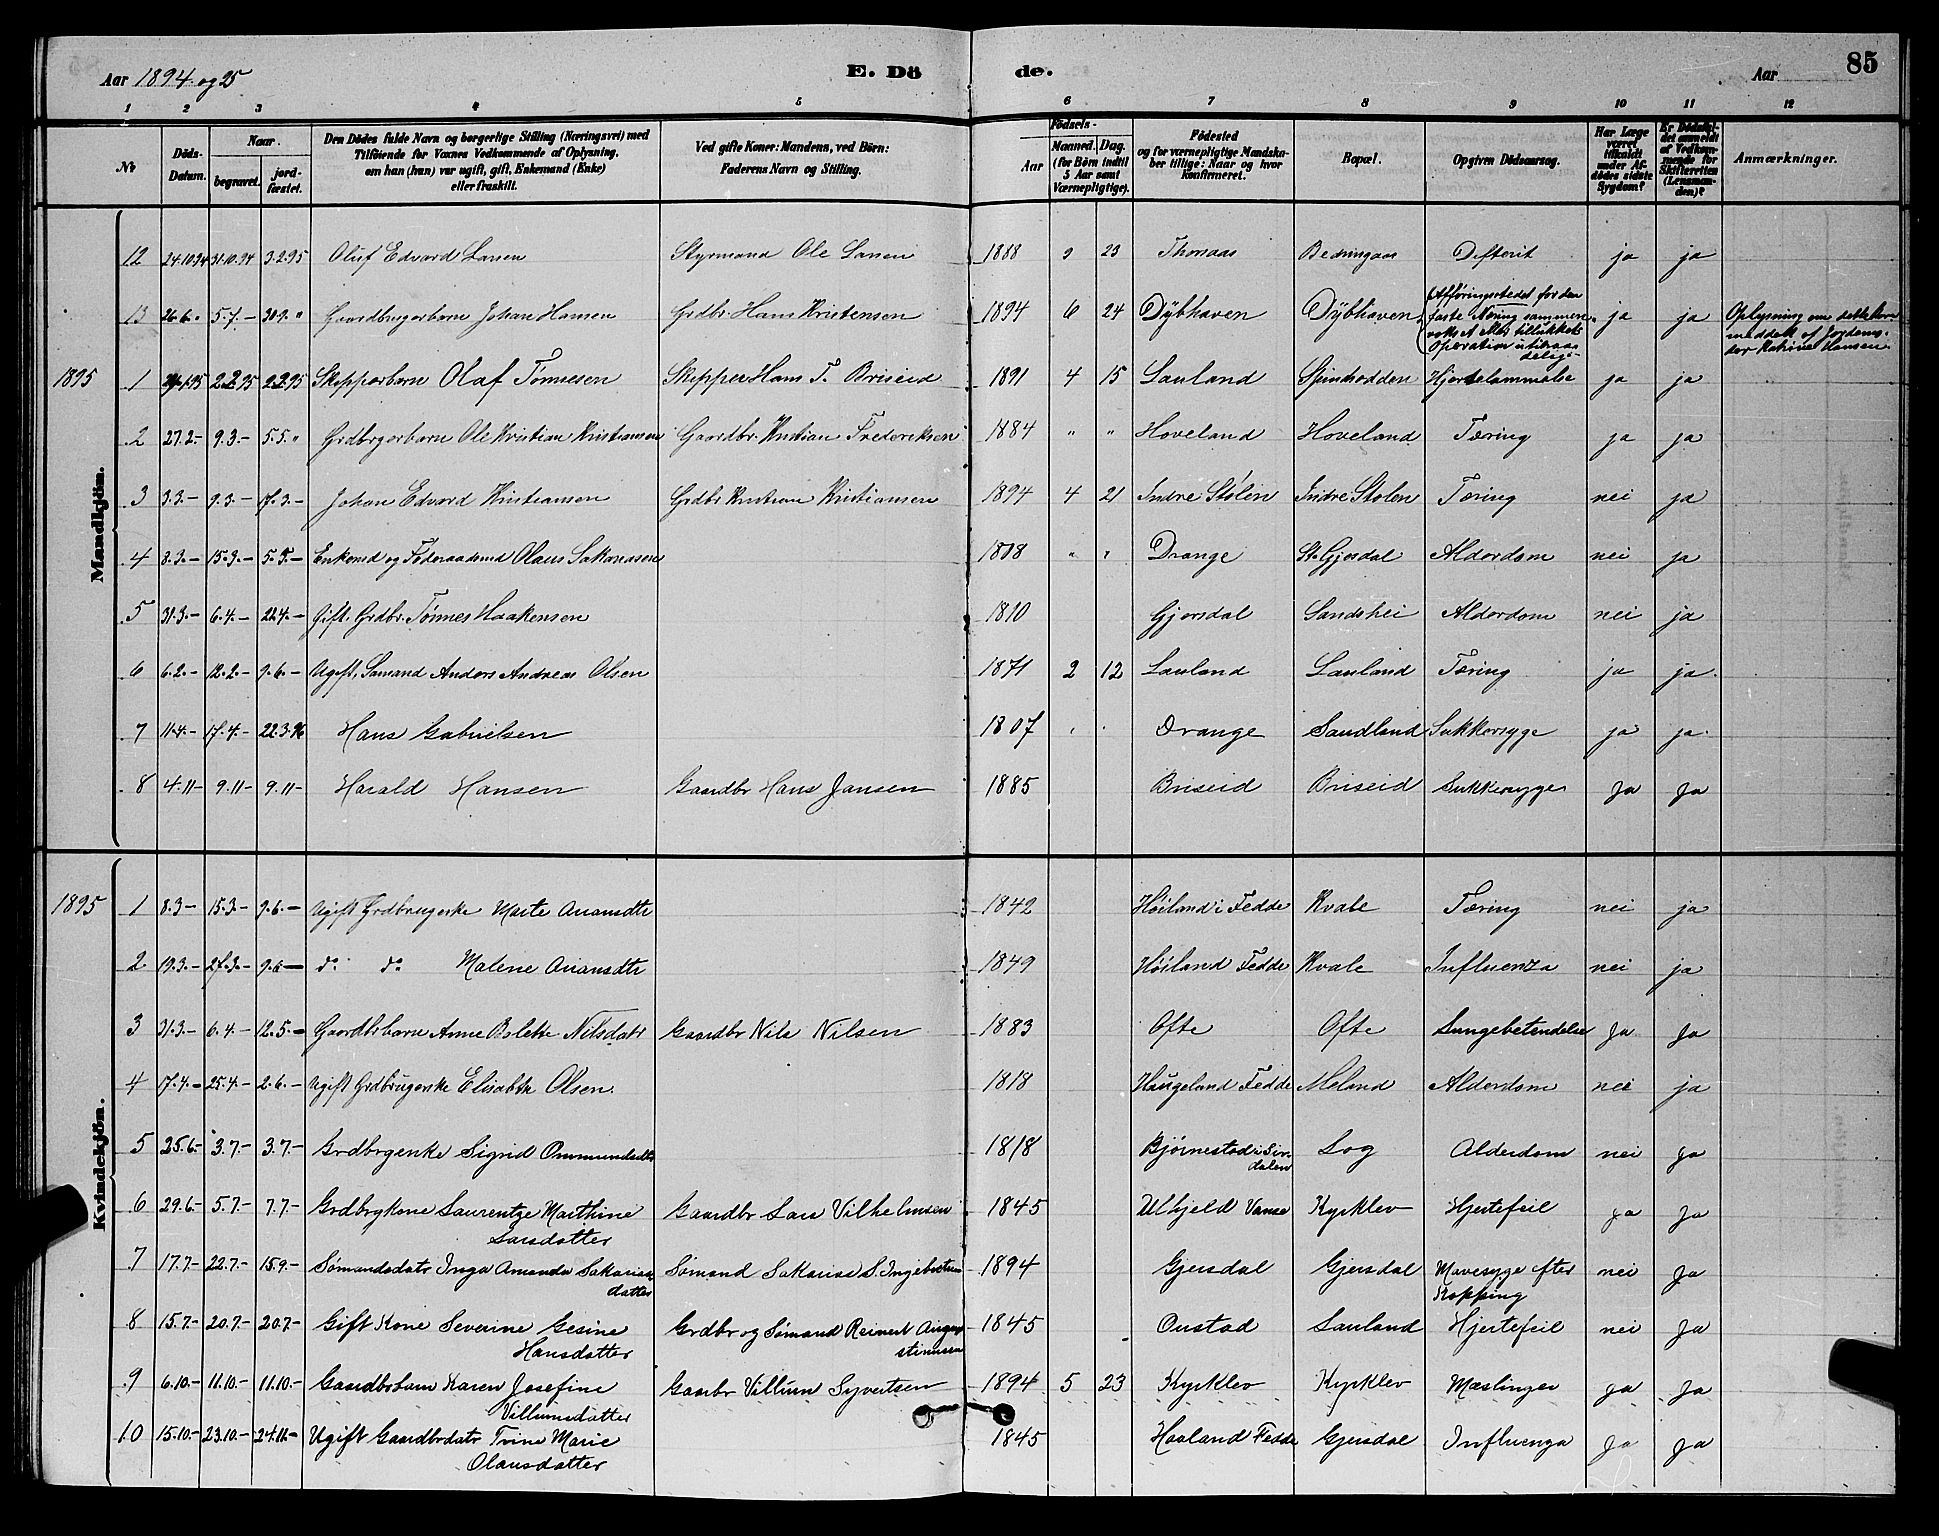 Aar 1894 og 95 E. Dö de. Aar 85
1 2 3 4 5 6 7 8 9 10 11 12
№ Döds-Datum. Naar begravet. jordfæstet. Den Dödes fulde Navn og borgerlige Stilling (Næringsvei) med Tilföiende for Voxnes Vedkommende af Oplysning, om han (hun) var ugift, gift, Enkemand (Enke) eller fraskilt. Ved gifte Koner: Mandens, ved Börn: Faderens Navn og Stilling. Födsels- Aar Maaned. Dag. (for Börn indtil 5 Aar samt Værnepligtige). Födested og for værnepligtige Mandskaber tillige: Naar og hvor konfirmeret. Bopæl. Opgiven Dödsaarsag. Har Læge været tilkaldt under Afdödes sidste Sygdom? Er Dödsfaldet anmeldt af Vedkommende for Skifteretten (Lensmanden)? Anmærkninger.
Mandkjön.
12 24.10.94 31.10.94 3.2.95 Oluf Edvard Larsen Styrmand Ole Larsen 1888 9 23 Thorsaas Bedringaas Difterit ja ja
13 26.6. " 5.7. – 30.9. " Gaardbrugerbarn Johan Hansen Grdbr. Hans Kristensen 1894 6 24 Dybhaven Dybhaven (Afföringsstedet for den faste Næring sammenvokst Operation ja ja Oplysning om dette meddelt af Jordemoder Katrine Hansen
1895 1 95 2.2.95 2.2.95 Skipperbarn Olaf Tønnesen Skipper Hans T. Briseid 1891 4 15 Lauland Spindsodden Hjernelammelse ja ja
2 27.2– 9.3.– 5.5. " Grdbrgerbarn Ole Kristian Kristiansen Gaardbr. Kristian Frederiksen 1884 " " Hoveland Hoveland Tæring ja ja
3 3.3.– 9.3.– 17.3.– Johan Edvard Kristiansen Grdbr Kristian Kristiansen 1894 4 21 Indre Stølen Indre Stolen Tæring nei ja
4 8.3.– 15.3.– 5.5.– Enkemd og Føderaadsmd Olaus Sakariassen 1818 " " Drange St. Gjersdal Alderdom nei ja
5 31.3.– 6.4.– 22.4.– Gift. Grdbr. Tønnes Haakensen 1810 Gjersdal Sandshei Alderdom nei ja
6 6.2.– 12.2.– 9.6.– Ugift, Sømand Anders Andreas Olsen 1871 2 12 Lauland Lauland Tæring ja ja.
7 11.4.– 17.4.– 22.3.96 Hans Gabrielsen 1807 Drange Sandland Sukkersyge ja ja.
8 4.11– 9.11– 9.11– Harald Hansen Gaardbr Hans Jansen 1885 Briseid Briseid Sukkersyge Ja Ja
Kvindekjön.
1895 1 8.3– 15.3.– 9.6.– Ugift Grdbrugerske Marte Anansdtr 1842 Höiland i Fedde Kvale Tæring nei ja
2 19.3.– 27.3.– 9.6– do do Malene Anansdtr 1849 Höiland Fedde Kvale Influenza nei ja
3 31.3.– 6.4.– 12.5.– Gaardbsbarn Anne Bolette Nilsdatr Gaardbr Nils Nilsen 1883 Ofte Ofte Lungebetendelse Ja Ja
4 17.4.– 25.4.– 2.6.– Ugift Grdbrugerske Elisabth Olsen. 1818 Haugeland Fedde Meland Alderdom nei ja
5 25.6.– 3.7.– 3.7.– Grdbrgenke Sigrid Ommundsdtr 1818 Bjørnestad i Sirdalen Log Alderdom nei ja
6 29.6.– 5.7.– 7.7.– Grdbrgkone Laurentze Marthine Larsdatter Gaardbr Lars Vilhelmsen 1845 Ulhjeld Vanse Kyrklev Hjertefeil ja Ja
7 17.7.– 22.7.– 15.9.– Sømandsdatr Inga Amanda Sakariasdatter Sømand Sakarias S. Ingebretsen 1894 Gjersdal Gjersdal Mavesyge efter Kopping nei Ja
8 15.7– 20.7– 20.7– Gift Kone Severine Gesine Hansdatter Grdbr og Sømand Reinert Augustinussen 1845 Onstad Lauland Hjertefeil nei Ja
9 6.10.– 11.10.– 11.10.– Gaardbrbarn Karen Josefine Villumsdatter Gaarbr Villum Syvertsen 1894 5 23 Kyrklev Kyrklev Mæslinger Ja Ja
10 15.10.– 23.10.– 24.11.– Ugift Gaardbrdatr Trine Marie Olausdatter 1845 Haaland Fedde Gjersdal Influenza Ja Ja